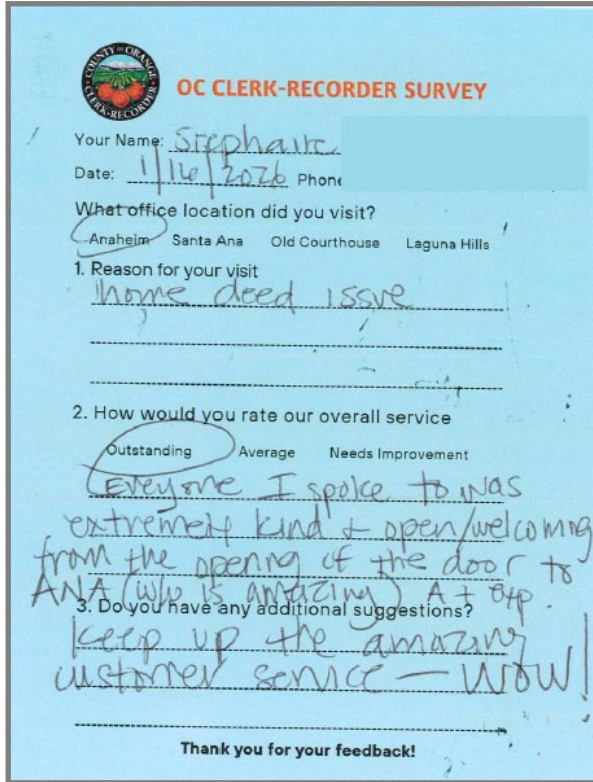 COUNTY OF ORANGE
CLERK-RECORDER
OC CLERK-RECORDER SURVEY
Your Name: Stephanie
Date: 1/16/2026 Phone
What office location did you visit?
Anaheim Santa Ana Old Courthouse Laguna Hills
1. Reason for your visit
home deed issue
2. How would you rate our overall service
Outstanding Average Needs Improvement
Everyone I spoke to was
extremely kind + open/welcoming
from the opening of the door to
ANA (who is amazing) A+ exp.
3. Do you have any additional suggestions?
Keep up the amazing
customer service — WOW!
Thank you for your feedback!